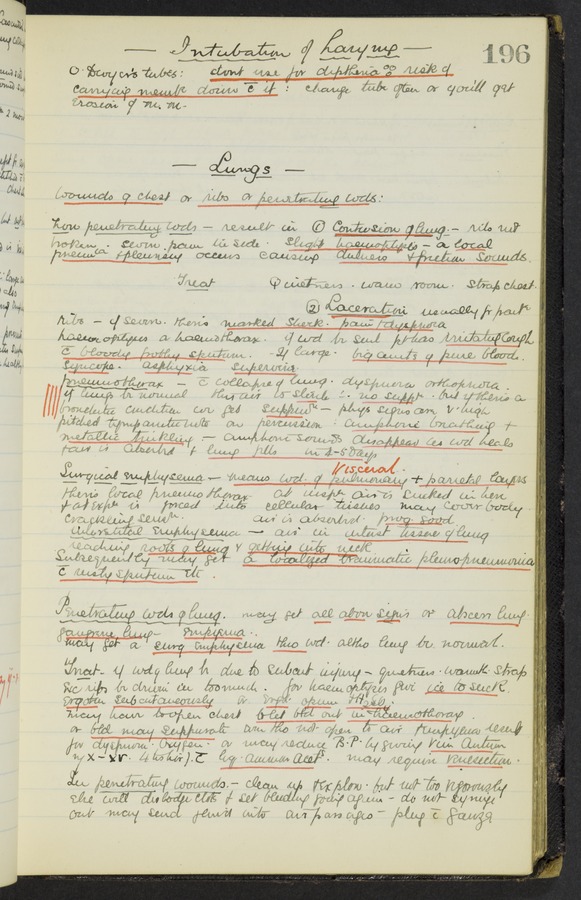 196
— Intubation of Larynx —
O'Dwyer's tubes: dont use for diptheria risk of
carrying memb. down c̄ it: change tube often or you'll get
Erosion of m.m.
— Lungs —
Wounds of chest or ribs or penetrating wds:
Non penetrating wds — result in ① Contusion of lung — ribs not
broken. severe pain in side. Slight haemoptysis — a local
pneum. & pleurisy occurs causing dulness & friction sounds.
Treat Quietness. warm room. Strap chest.
② Laceration usually fr fract.
ribs — if severe. there's marked shock. pain & dyspnoea
haemoptysis & haemothorax. If wd be small pt has irritating cough
c̄ bloody frothy sputum. If large. big amts of pure blood.
Syncope. asphyxia supervise.
Pneumothorax — c̄ collapse of lung. dyspnoea orthopnoea.
if lungs be normal this air is sterile ∴ no supp. but if there's a
bronchitic condition we get suppur. — phys signs are v. high
pitched tympanitic note on percussion: amphoric breathing &
metallic tinkling — amphoric sounds disappear as wd heals
& air is absorbed & lung fills in 2-5 days
Visceral.
Surgical emphysema — means wd. of pulmonary & parietal layers
there's local pneumothorax. at inspn air is sucked in here
& at expn is forced into cellular tissues. may cover body
crackling sensn. air is absorbed. prog. good
Interstitial Emphysema — air in interst tissue of lung
reaching roots of lung & getting into neck
Subsequently may get a localized traumatic pleuropneumonia
c̄ rusty sputum etc.
Penetrating wds of lung. may get all above signs or abscess lung.
gangrene lung. Empyema.
may get a surg emphysema thro wd. altho lung be normal.
Treat — if wd of lung be due to subcut injury — quietness. warmth strap
for haemoptysis give ice to suck.
Ergotin subcutaneously or
may have to open chest & let bld out in haemothorax
or bld may suppurate and tho not open to air & empyema result
for dyspnoea. Oxygen. or may reduce B.P. by giving Vin Antim
♏x–xv. 4 hor.) c̄ liq. ammon Acet. may require Venesection.
In penetrating wounds. — clean up & explore. but not too vigorously
else will dislodge clots & set bleeding going again — do not syringe
out may send fluid into air passages — plug c̄ gauze